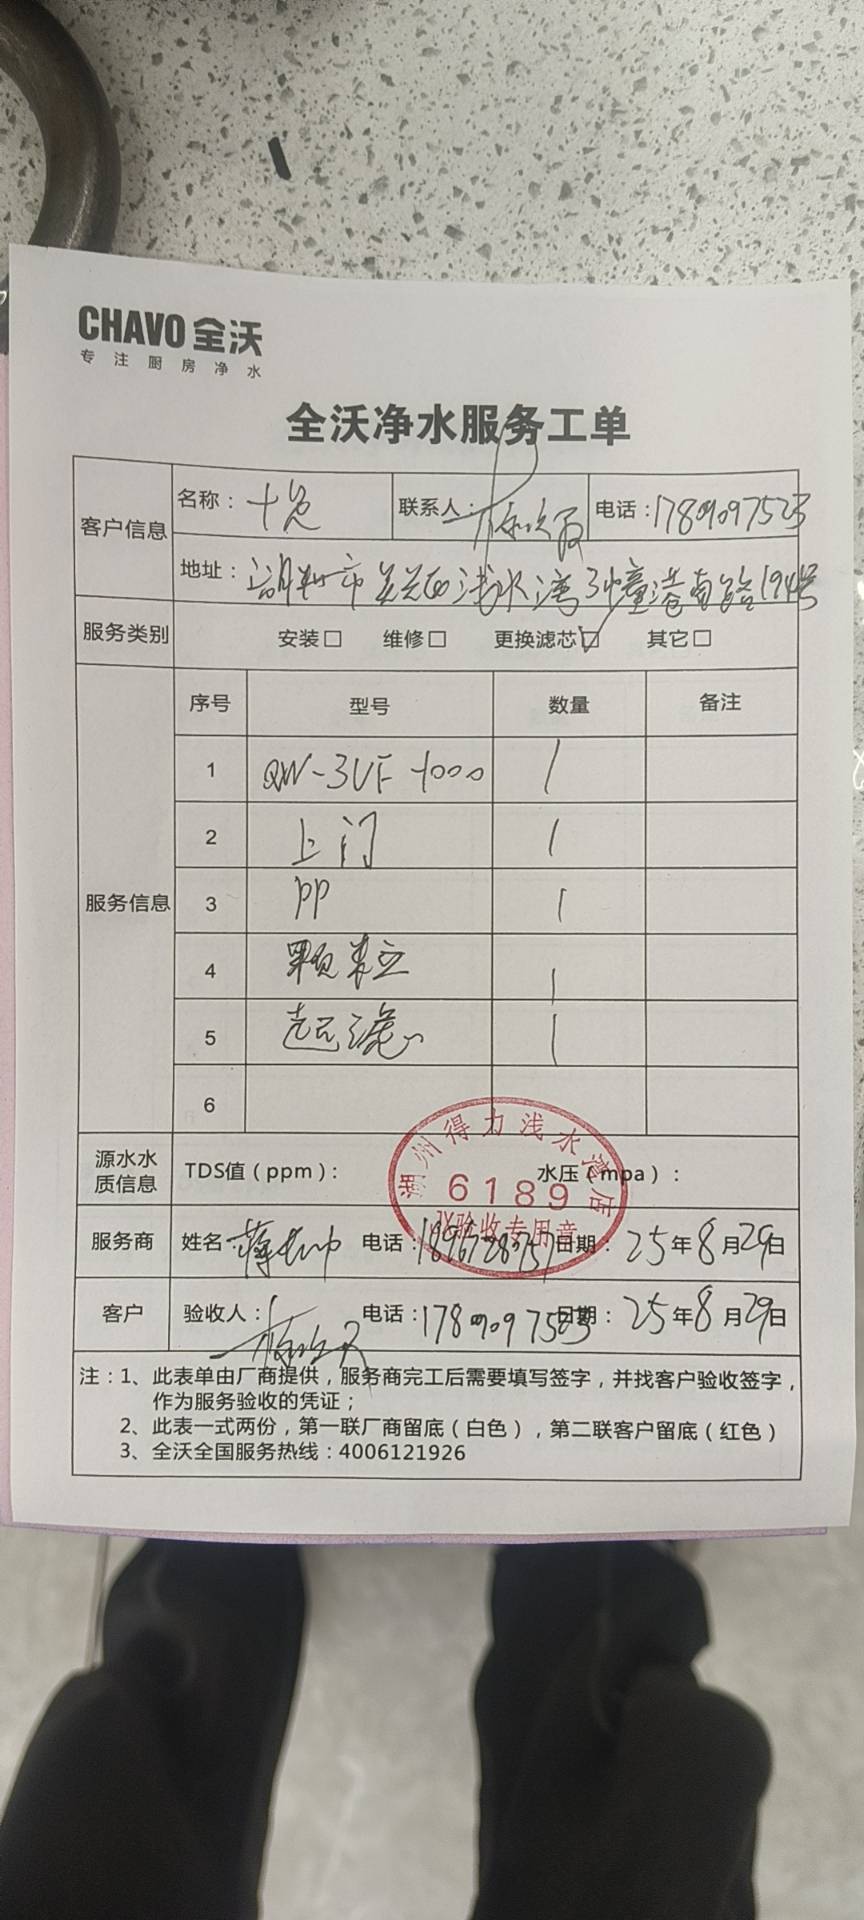 CHAVO 全沃
专注厨房净水
全沃净水服务工单
客户信息 名称： 联系人： 电话：17809097523
地址： 湖州市 浅水湾 幢港南路194号
服务类别 安装□ 维修□ 更换滤芯☑ 其它□
服务信息 序号 型号 数量 备注
1 QW-3UF-1000 1
2 上门 1
3 PP 1
4 颗粒 1
5 超滤 1
6
源水水质信息 TDS值（ppm）： 水压（mpa）：
湖州得力浅水湾店
6189
验收专用章
服务商 姓名： 电话： 日期： 25年8月29日
客户 验收人： 电话：17809097523 日期： 25年8月29日
注：1、此表单由厂商提供，服务商完工后需要填写签字，并找客户验收签字，
作为服务验收的凭证；
2、此表一式两份，第一联厂商留底（白色），第二联客户留底（红色）
3、全沃全国服务热线：4006121926